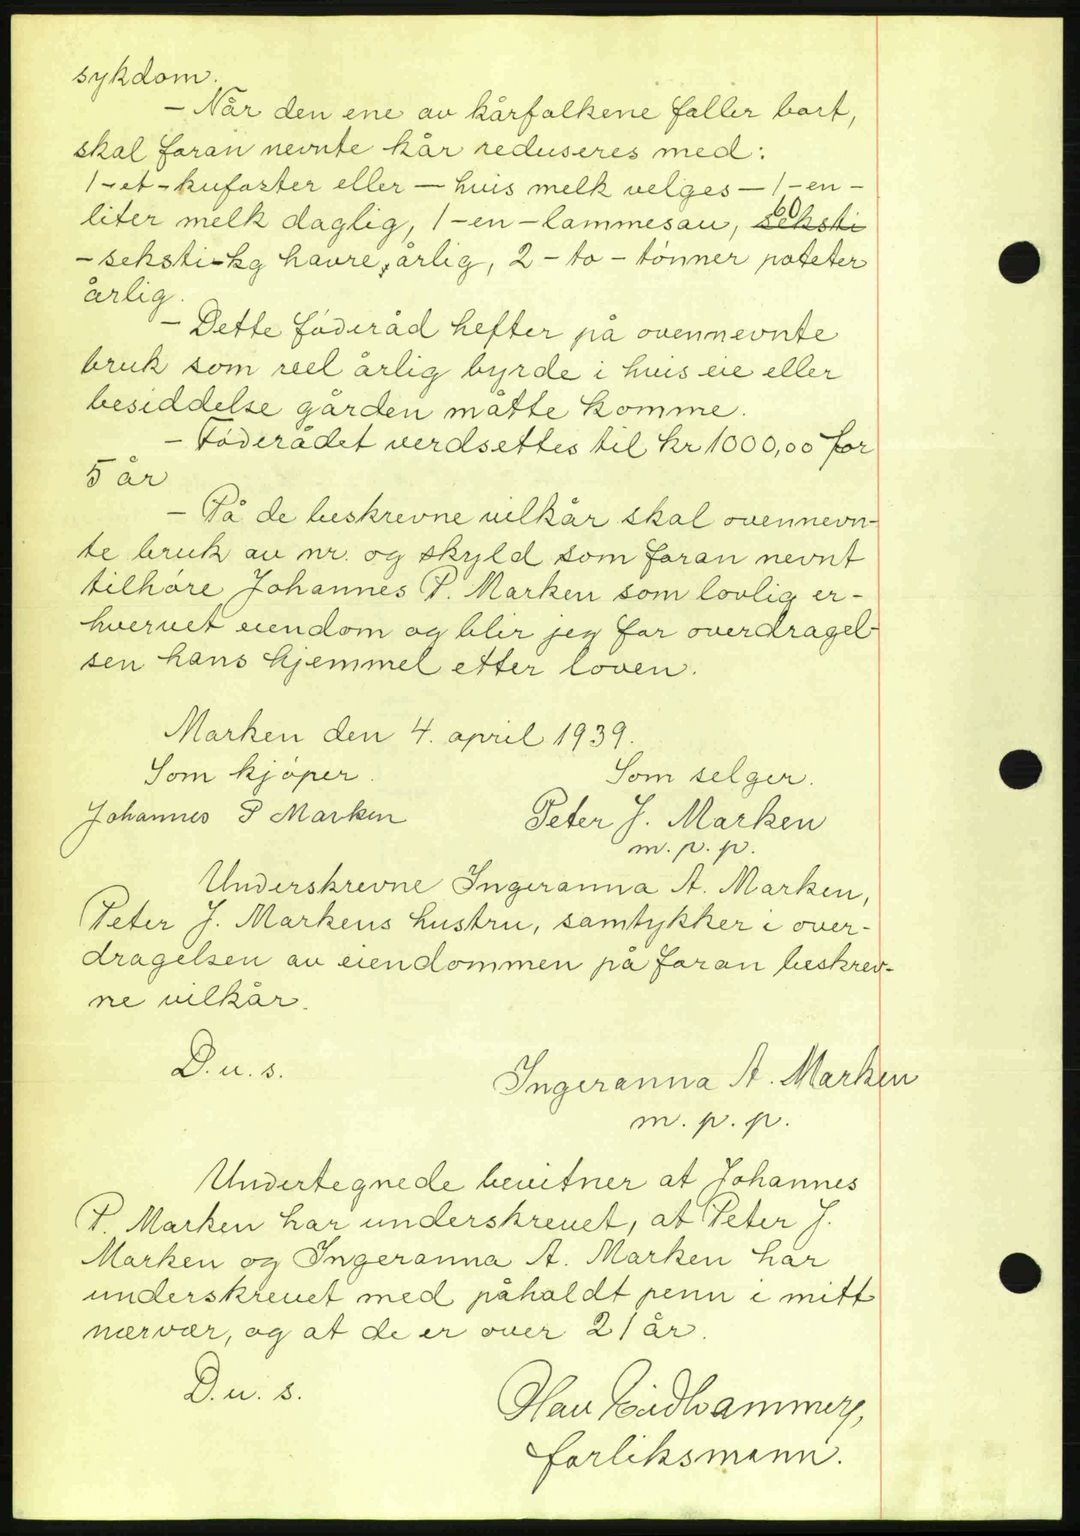 sykdom.
- Når den ene av kårfolkene faller bort,
skal foran nevnte kår reduseres med:
1-et-kufoster eller – hvis melk velges – 1-en-
liter melk daglig, 1-en-lammesau, seksti 60
-seksti-kg havre, årlig, 2-to-tónner poteter
årlig.
- Dette fóderåd hefter på ovennevnte
bruk som reel årlig byrde i hvis eie eller
besiddelse gården måtte komme.
- Fóderådet verdsettes til kr 1000,00 for
5 år
- På de beskrevne vilkår skal ovennevn-
te bruk av nr. og skyld som foran nevnt
tilhóre Johannes P. Marken som lovlig er-
hvervet eiendom og blir jeg for overdragel-
sen hans hjemmel etter loven.
Marken den 4. april 1939.
Som kjóper. Som selger.
Johannes P Marken Peter J. Marken
m. p. p.
Underskrevne Ingeranna A. Marken,
Peter J. Markens hustru, samtykker i over-
dragelsen av eiendommen på foran beskrev-
ne vilkår.
D. u. s. Ingeranna A. Marken
m. p. p.
Undertegnede bevitner at Johannes
P. Marken har underskrevet, at Peter J.
Marken og Ingeranna A. Marken har
underskrevet med påholdt penn i mitt
nærvær, og at de er over 21 år.
D. u. s. Olav Eidhammer,
forliksmann.